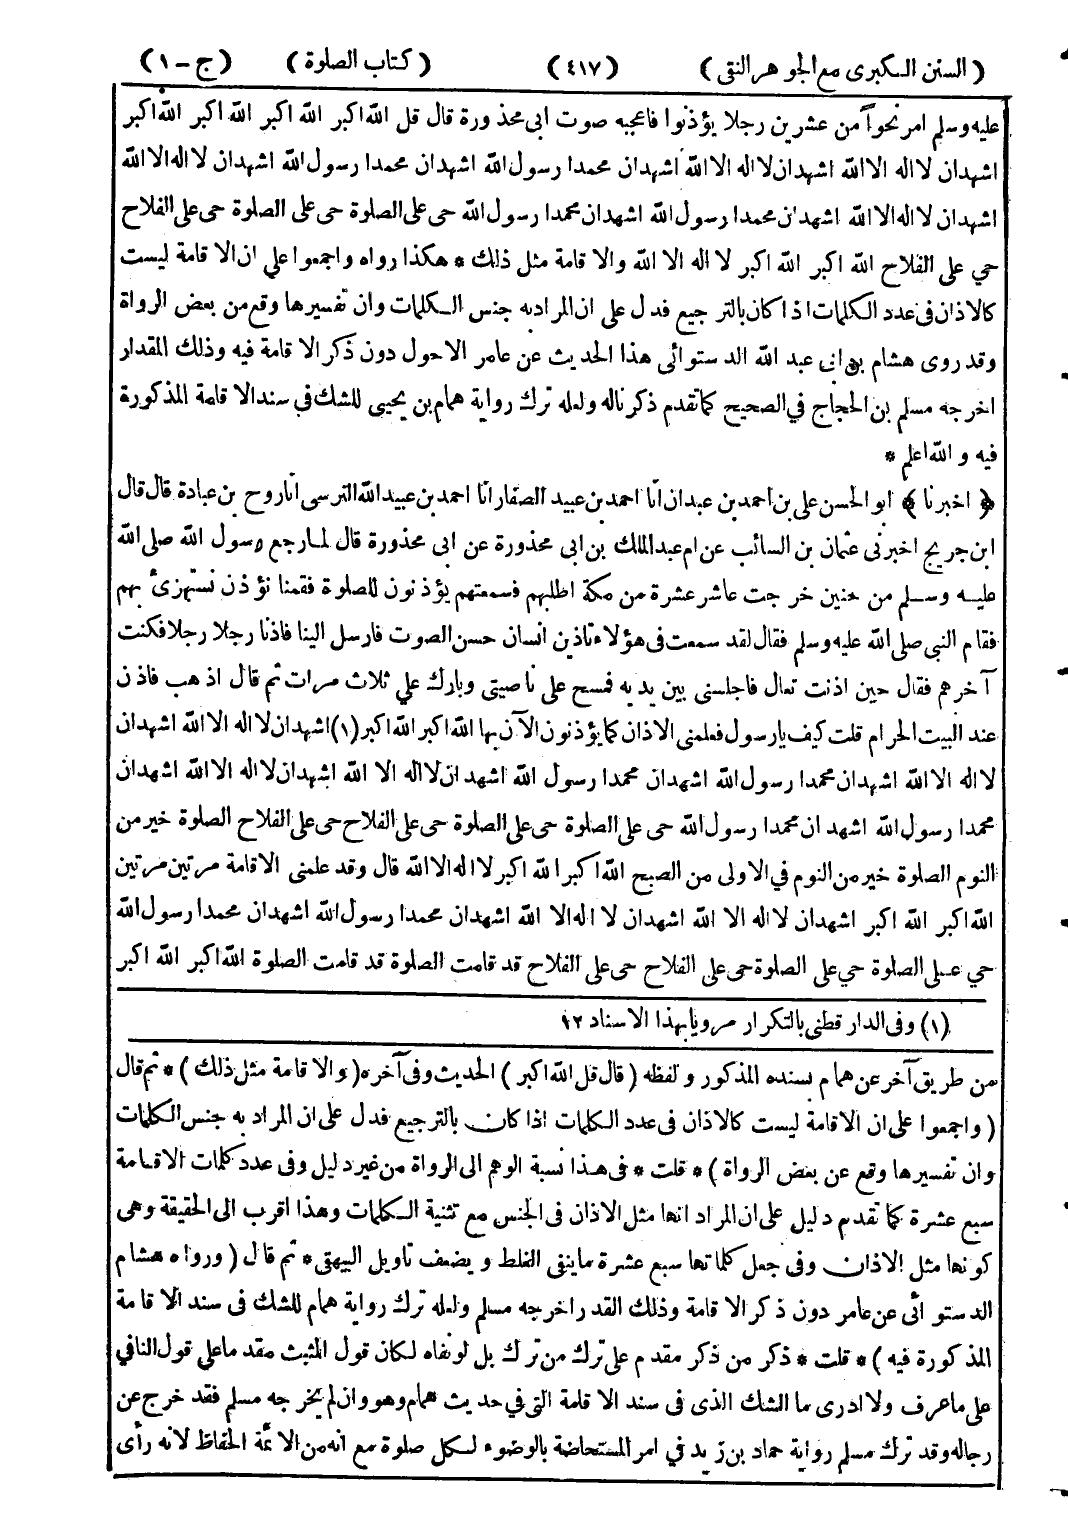 ( السنن الكبرى مع الجوهر النقى ) ( ٤١٧ ) ( كتاب الصلوة ) ( ج - ١ )
عليه وسلم امر نحوا من عشرين رجلا يؤذنوا فاعجبه صوت ابى محذورة قال قل الله اكبر الله اكبر الله اكبر الله اكبر
اشهد ان لا اله الا الله اشهد ان لا اله الا الله اشهد ان محمدا رسول الله اشهد ان محمدا رسول الله اشهد ان لا اله الا الله
اشهد ان لا اله الا الله اشهد ان محمدا رسول الله اشهد ان محمدا رسول الله حى على الصلوة حى على الصلوة حى على الفلاح
حي على الفلاح الله اكبر الله اكبر لا اله الا الله والاقامة مثل ذلك * هكذا رواه واجمعوا علي ان الاقامة ليست
كالاذان فى عدد الكلمات اذا كان بالترجيع فدل على ان المراد به جنس الكلمات وان تفسيرها وقع من بعض الرواة
وقد روى هشام بن ابى عبد الله الدستوائى هذا الحديث عن عامر الاحول دون ذكر الاقامة فيه وذلك المقدار
اخرجه مسلم بن الحجاج في الصحيح كما تقدم ذكرنا له ولعله ترك رواية همام بن يحيى للشك في سند الاقامة المذكورة
فيه و الله اعلم *
﴿ اخبرنا ﴾ ابو الحسن على بن احمد بن عبدان انا احمد بن عبيد الصفار انا احمد بن عبيد الله النرسى انا روح بن عبادة قال قال
ابن جريج اخبرنى عثمان بن السائب عن ام عبد الملك بن ابى محذورة عن ابى محذورة قال لما رجع رسول الله صلى الله
عليه وسلم من حنين خرجت عاشر عشرة من مكة اطلبهم فسمعتهم يؤذنون للصلوة فقمنا نؤذن نستهزئ بهم
فقام النبي صلى الله عليه وسلم فقال لقد سمعت فى هؤلاء تاذين انسان حسن الصوت فارسل الينا فاذنا رجلا رجلا فكنت
آخرهم فقال حين اذنت تعال فاجلسني بين يديه فمسح على ناصيتي وبارك علي ثلاث مرات ثم قال اذهب فاذن
عند البيت الحرام قلت كيف يا رسول فعلمنى الاذان كما يؤذنون الآن بها الله اكبر الله اكبر (١) اشهد ان لا اله الا الله اشهد ان
لا اله الا الله اشهد ان محمدا رسول الله اشهد ان محمدا رسول الله اشهد ان لا اله الا الله اشهد ان لا اله الا الله اشهد ان
محمدا رسول الله اشهد ان محمدا رسول الله حى على الصلوة حى على الصلوة حى على الفلاح حى على الفلاح الصلوة خير من
النوم الصلوة خير من النوم في الاولى من الصبح الله اكبر الله اكبر لا اله الا الله قال وقد علمنى الاقامة مرتين مرتين
الله اكبر الله اكبر اشهد ان لا اله الا الله اشهد ان لا اله الا الله اشهد ان محمدا رسول الله اشهد ان محمدا رسول الله
حي على الصلوة حي على الصلوة حى على الفلاح حى على الفلاح قد قامت الصلوة قد قامت الصلوة الله اكبر الله اكبر
(١) وفى الدار قطنى بالتكرار مرويا بهذا الاسناد ١٢
من طريق آخر عن همام بسنده المذكور و لفظه ( قال قل الله اكبر ) الحديث وفى آخره ( والاقامة مثل ذلك ) * ثم قال
( واجمعوا على ان الاقامة ليست كالاذان فى عدد الكلمات اذا كان بالترجيع فدل على ان المراد به جنس الكلمات
وان تفسيرها وقع عن بعض الرواة ) * قلت * فى هذا نسبة الوهم الى الرواة من غير دليل وفى عدد كلمات الاقامة
سبع عشرة كما تقدم دليل على ان المراد انها مثل الاذان فى الجنس مع تثنية الكلمات وهذا اقرب الى الحقيقة وهى
كونها مثل الاذان وفى جعل كلماتها سبع عشرة ما ينفى الغلط و يضعف تاويل البيهقى * ثم قال ( ورواه هشام
الدستوائى عن عامر دون ذكر الاقامة وذلك القدر اخرجه مسلم ولعله ترك رواية همام للشك فى سند الاقامة
المذكورة فيه ) * قلت * ذكر من ذكر مقدم على ترك من ترك بل لو نفاه لكان قول المثبت مقدما على قول النافي
على ما عرف ولا ادرى ما الشك الذى فى سند الاقامة التى في حديث همام وهو وان لم يخرجه مسلم فقد خرج عن
رجاله وقد ترك مسلم رواية حماد بن زيد في امر المستحاضة بالوضوء لكل صلوة مع انه من الائمة الحفاظ لانه رأى